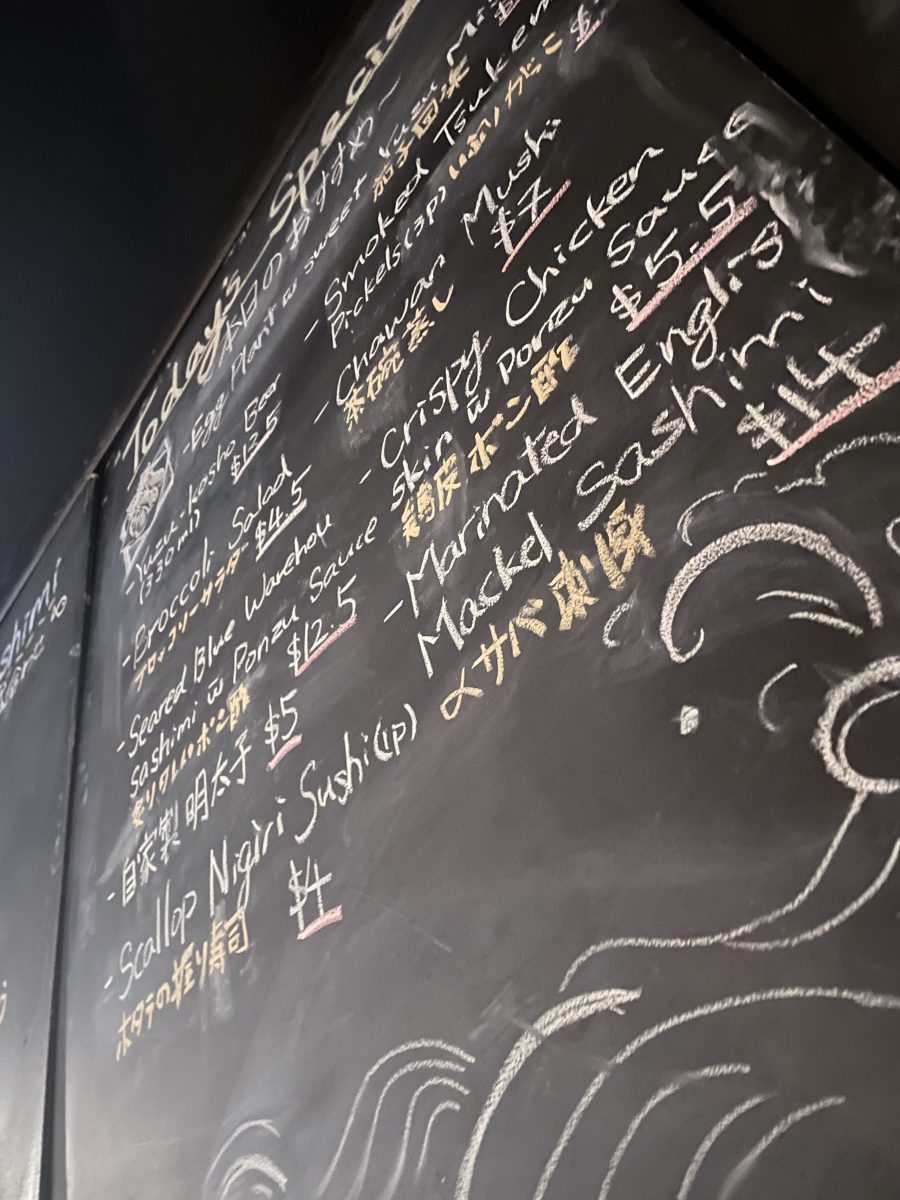 Today's Special
本日のおすすめ
- Egg Plant w sweet Yuzu Mis
茄子田楽
- Yuzu-kosho Beer
(330ml) $12.5
- Broccoli Salad
ブロッコリーサラダ $4.5
- Seared Blue Warehou
Sashimi w Ponzu Sauce
炙りワレハポン酢 $12.5
- 自家製明太子 $5
- Scallop Nigiri Sushi (1p)
ホタテの握り寿司 $4
- Smoked Tsukem
Pickels (3p) いぶりがっこ
- Chawan Mushi
茶碗蒸し $7
- Crispy Chicken
Skin w Ponzu Sauce
鶏皮ポン酢 $5.5
- Marinated English
Mackel Sashimi
〆サバ刺身 $14
shimi